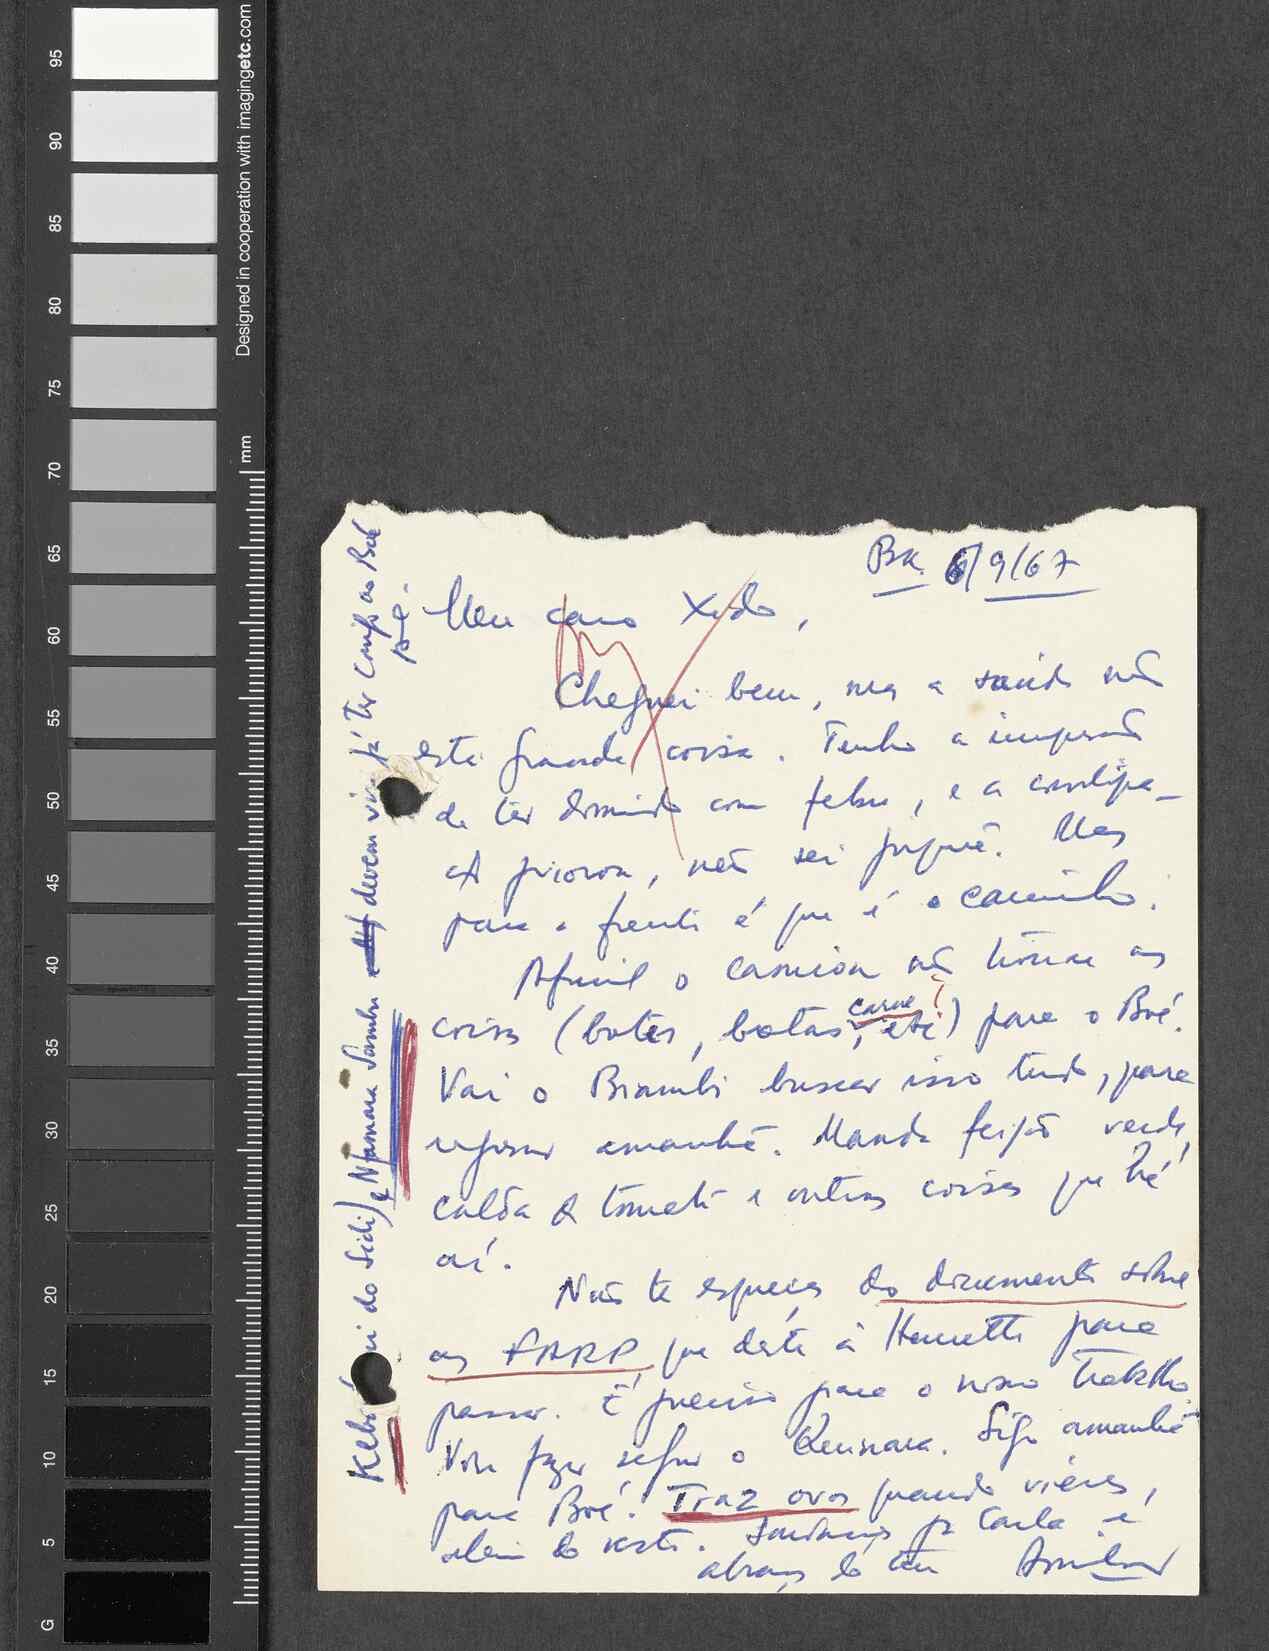 95
90
85
80
75
70
65
60
55
50
45
40
35
30
25
20
15
10
5
G
Designed in cooperation with imagingetc.com
mm
BK. 6/9/67
Meu caro Xido,
Cheguei bem, mas a saúde não
está grande coisa. Tenho a impressão
de ter dormido com febre, e a constipa-
piorou, não sei porquê. Mas
para a frente é que é o caminho.
Afinal o camion não trouxe as
coisas (botes, botas, carne!, etc) para o Boé.
Vai o Biambi buscar isso tudo, para
amanhã. Manda feijão verde,
calda de tomate e outras coisas que há
aí.
Não te esqueças do documento sobre
as FARP que deste à Henriette para
passar. É preciso para o nosso trabalho.
Vou fazer seguir o Sigo amanhã
para Boé. Traz ovos quando vieres,
além do resto. Saudações pª Carla e
abraços do teu Amilcar
do Sidi) e Nfamara Sambu devem vir já ter comigo ao Boé